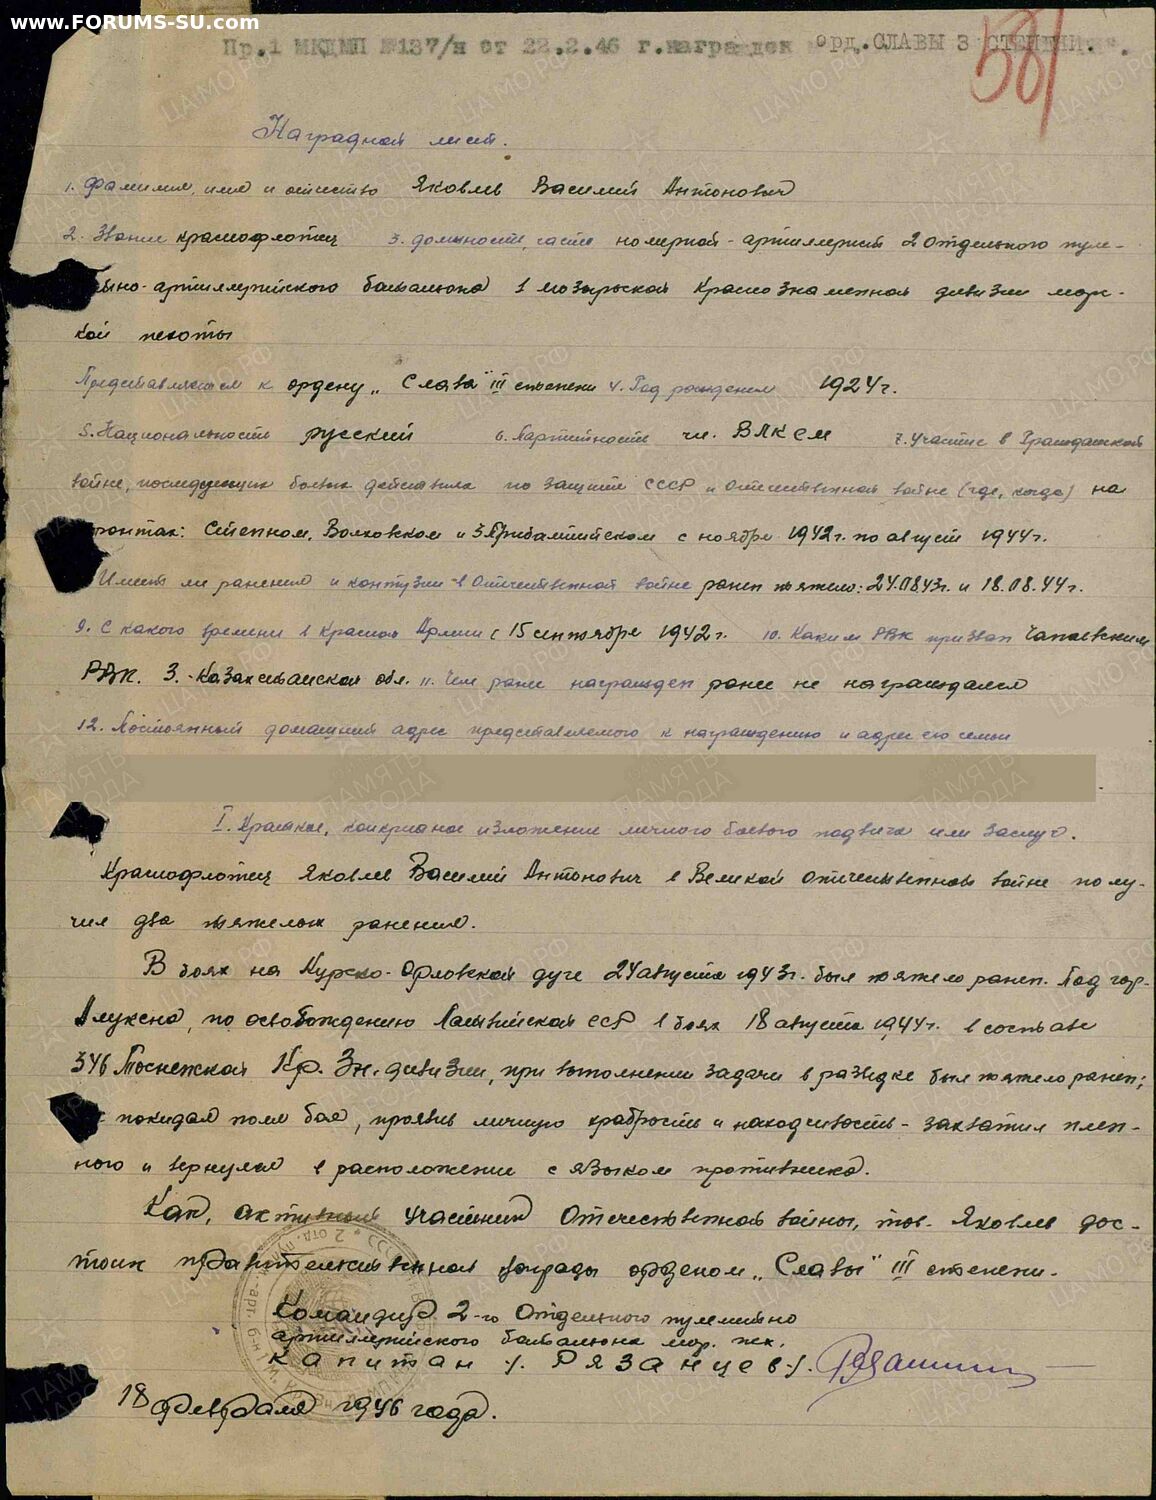 www.FORUMS-SU.com
Пр.1 МКДМП №137/н от 22.2.46 г. награжден орд. СЛАВЫ 3 СТЕПЕНИ.
581
Наградной лист.
1. Фамилия, имя и отчество Яковлев Василий Антонович
2. Звание краснофлотец 3. должность, часть номерной-артиллерист 2 отдельного пуле-
но-артиллерийского батальона 1 мозырьской Краснознаменной дивизии морс-
кой пехоты
Представляется к ордену „Слава" III степени 4. Год рождения 1924г.
5. Национальность русский 6. Партийность чл. ВЛКСМ 7. участие в Гражданской
войне, последующих боевых действиях по защите СССР и Отечественной войне (где, когда) на
фронтах: Степном, Волховском и 3 Прибалтийском с ноября 1942г. по август 1944г.
Имеет ли ранения и контузии в Отечественной войне ранен тяжело: 24.08.43г. и 18.08.44г.
9. С какого времени в Красной Армии с 15 сентября 1942г. 10. Каким РВК призван Чапаевским
РВК. З.-Казахстанской обл. 11. Чем ранее награжден ранее не награждался
12. Постоянный домашний адрес представляемого к награждению и адрес его семьи
I. Краткое, конкретное изложение личного боевого подвига или заслуг.
Краснофлотец Яковлев Василий Антонович в Великой отечественной войне полу-
чил два тяжелых ранения.
В боях на Курско-Орловской дуге 24 августа 1943г. был тяжело ранен. Под гор.
Алуксна, по освобождению Латвийской ССР в боях 18 августа 1944г. в составе
346 Тоснежской Кр. Зн. дивизии, при выполнении задачи в разведке был тяжело ранен;
покидая поля боя, проявив личную храбрость и находчивость - захватил плен-
ного и вернулся в расположение с языком противника.
Как, активный участник Отечественной войны, тов. Яковлев дос-
тоин правительственной награды орденом „Славы" III степени.
Командир 2-го Отдельного пулеметно
артиллерийского батальона мор. пех.
Капитан /. Рязанцев/.
18 февраля 1946 года.